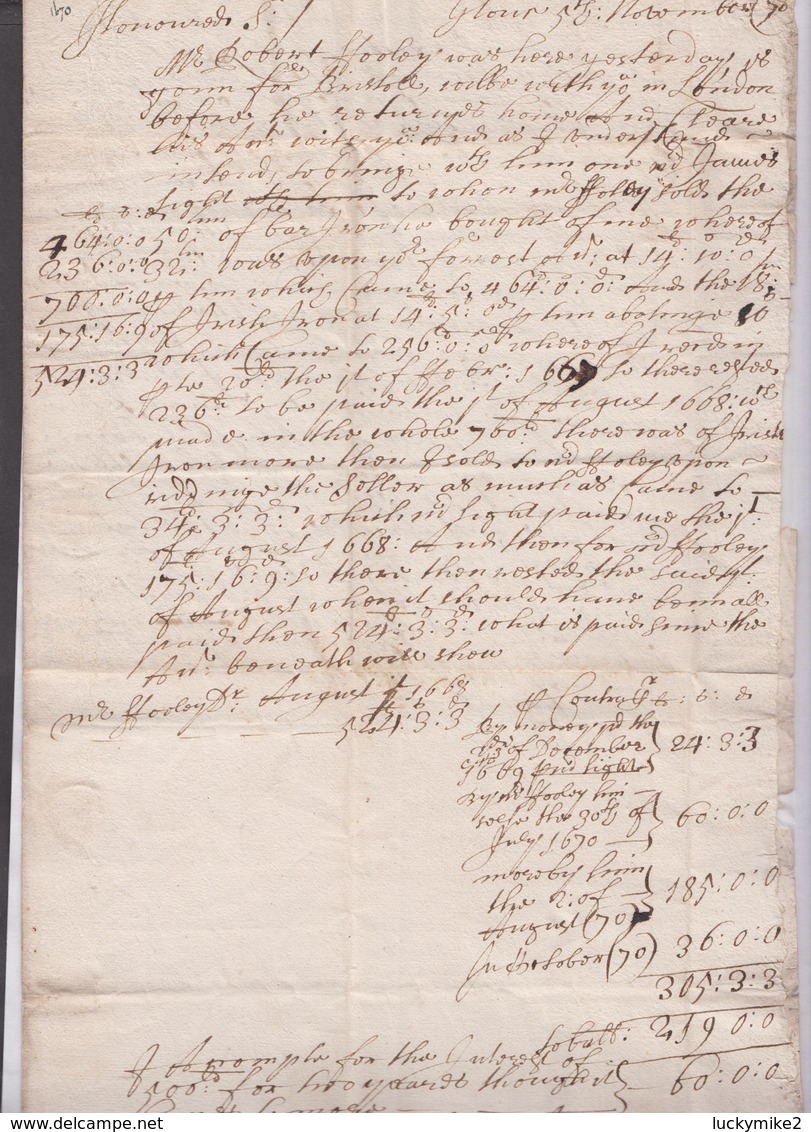 1670
Honoured Sr: Glouc 5th: November (70
Mr Robert Fooley was here yesterday is
gonn for Bristoll, wilbe with yo in London
before he returnes home And Cleare
his Ac: with yo: And as I understand
intend, to bringe wth him one James
Light to whom Mr Fooley sold the
464:0:0 50: of bar Iron he bought of me whereof
236:0:0 32: was upon yor forrest at 14: 10: 0
700:0:0 him which Came to 464: 0: 0: And the 18:
175:16:9 of Irish Iron at 14: 5: 0 him abatinge 10
524:3:3 which Came to 256: 0: 0 whereof I
20 the 1st of Febr: 166 so there rested
236 to be paid the 1t of August 1668: wch
made in the whole 700 there was of Irish
Iron more then I sold to Mr Fooley upon
the Seller as much as Came to
34: 3: 3: which Light paid me the 1t:
of August 1668: And then for Mr Fooley
175: 16: 9: so there then rested the said 1t:
of August when it should have benn all
paid then 524: 3: 3: what is paid since the
Ac: beneath will shew
Mr Fooley Dr: August 1 1668
524: 3: 3
P Contra
By money pd the
of December 24: 3: 3
1669 Light
By Mr Fooley him
selfe the 30th of 60: 0: 0
July 1670
more by him
the 2: of 185: 0: 0
August (70)
In October (70) 36: 0: 0
305: 3: 3
to ball: 219 0: 0
for the Interest of
500 for two yeares thought 60: 0: 0
luckymike2